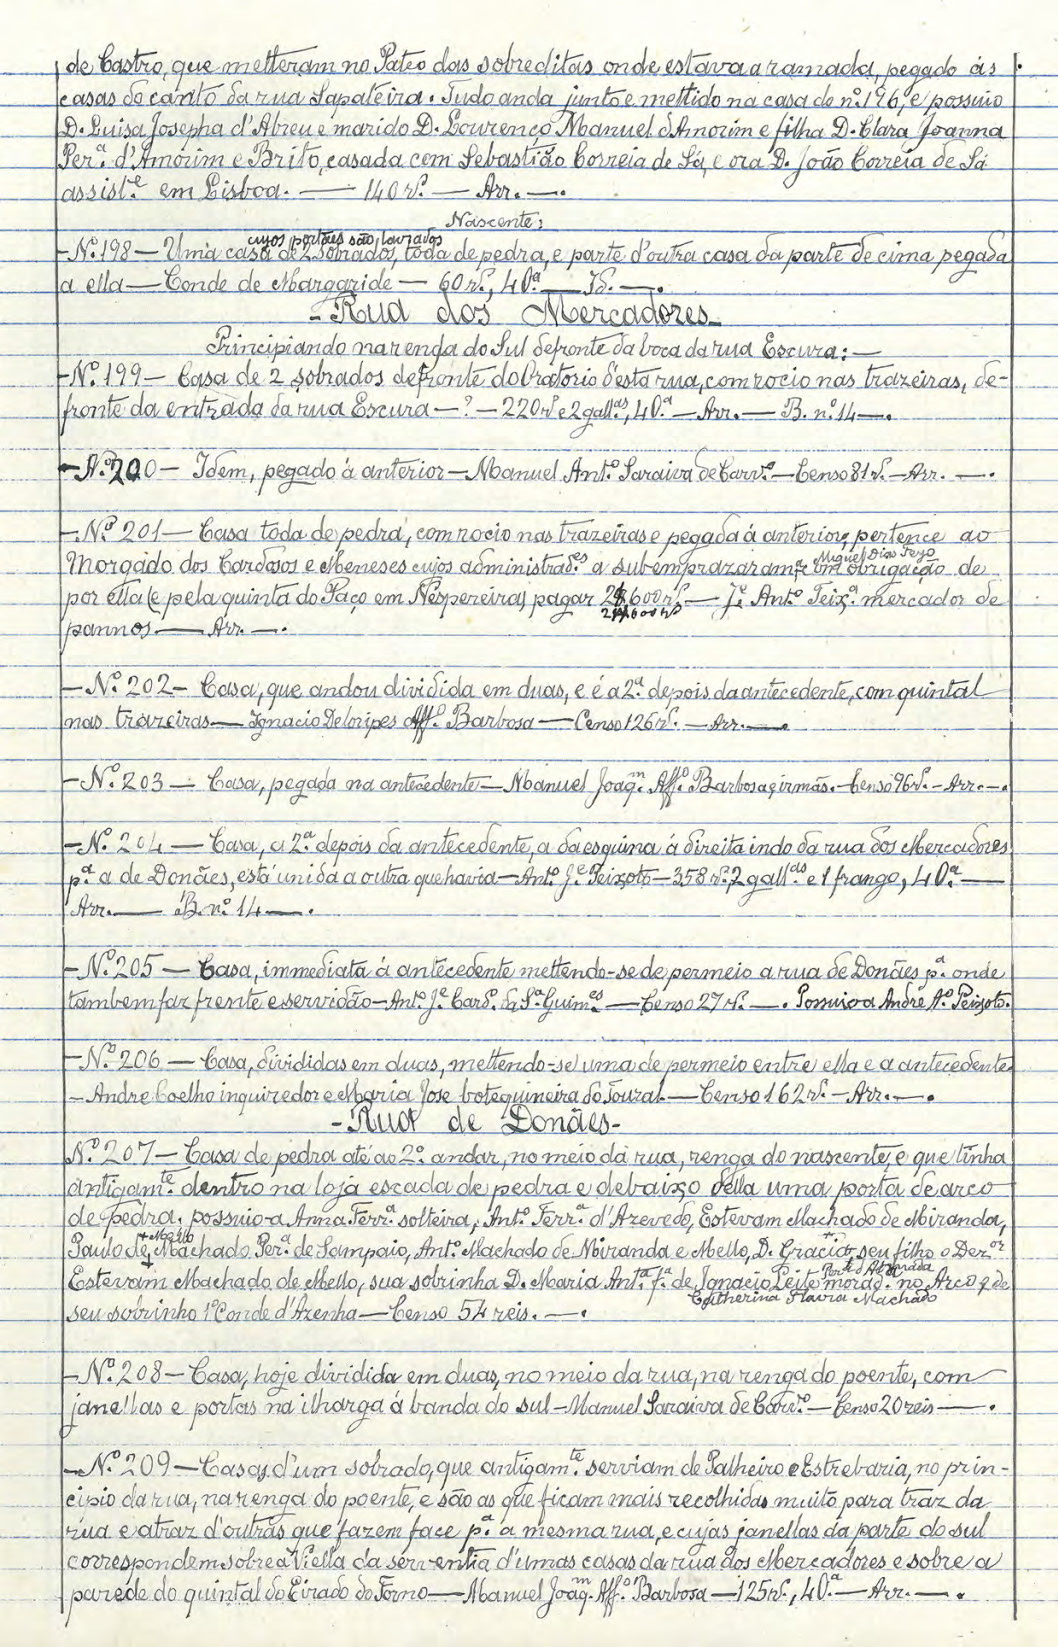 de Castro, que metteram no Pateo das sobreditas onde estava a ramada, pegado ás
casas do canto da rua Sapateira. Tudo anda junto e mettido na casa do nº. 196, e possuio
D. Luisa Josepha d'Abreu e marido D. Lourenço Manuel d'Amorim e filha D. Clara Joanna
Per.ª d'Amorim e Brito, casada com Sebastião Correia de Sá, e ora D. João Correia de Sá
assist.e em Lisboa. — 140 rs. — Arr. —.
Nascente:
cujos portaes são lavrados
- Nº. 198 — Uma casa de 2 sobrados, toda de pedra, e parte d'outra casa da parte de cima pegada
a ella — Conde de Margaride — 60 rs., 40.ª — Id. —.
- Rua dos Mercadores -
Principiando na renga do Sul defronte da boca da rua Escura: —
- Nº. 199 — Casa de 2 sobrados defronte do Oratorio d'esta rua, com rocio nas trazeiras, de-
fronte da entrada da rua Escura — ? — 220 rs e 2 gall.as, 40.ª — Arr. — B. nº. 14 —.
- Nº. 200 — Idem, pegado á anterior — Manuel Ant.º Saraiva de Carv.º — Censo 81 rs. — Arr. —.
- Nº. 201 — Casa toda de pedra, com rocio nas trazeiras e pegada á anterior, pertence ao
Morgado dos Cardosos e Meneses cujos administrad.es a subemprazaram a Miguel Dias Tejo com obrigação de
por ella (e pela quinta do Paço em Nespereira) pagar 2$600 rs — J.e Ant.º Teix.ª mercador de
2$600 rs
pannos — Arr. —.
- Nº. 202 - Casa, que andou dividida em duas, e é a 2.ª depois da antecedente, com quintal
nas trazeiras — Ignacio Deloripes Aff.º Barbosa — Censo 126 rs. — Arr. —.
- Nº. 203 — Casa, pegada na antecedente — Manuel Joaq.m Aff.º Barbosa e irmãs. — Censo 96 rs. — Arr. —.
- Nº. 204 — Casa, a 2.ª depois da antecedente, a da esquina á direita indo da rua dos Mercadores
p.ª a de Donães, está unida a outra que havia — Ant.º J.e Peixoto — 358 rs. 2 gall.as e 1 frango, 40.ª —
Arr. — B. nº. 14 —.
- Nº. 205 — Casa, immediata á antecedente mettendo-se de permeio a rua de Donães p.ª onde
tambem faz frente e servidão — Ant.º J.e Card. da S.ª Guim.es — Censo 27 rs. —. Possuio-a André A.º Peixoto.
- Nº. 206 — Casa, divididas em duas, mettendo-se uma de permeio entre ella e a antecedente
- André Coelho inquiredor e Maria José botequineira do Toural — Censo 162 rs. — Arr. —.
- Rua de Donães -
Nº. 207 — Casa de pedra até ao 2º. andar, no meio da rua, renga do nascente, e que tinha
antigam.te dentro na loja escada de pedra e debaixo d'ella uma porta de arco
de pedra, possuio-a Anna Ferr.ª solteira, Ant.º Ferr.ª d'Azevedo, Estevam Machado de Miranda,
Paulo de Mello Machado, Per.ª de Sampaio, Ant.º Machado de Miranda e Mello, D. Gracia, seu filho o Der.or
Estevam Machado de Mello, sua sobrinha D. Maria Ant.ª f.ª de Ignacio Leite morad. no Arco, e de
Catherina Flavia Machado
seu sobrinho 1º Conde d'Azenha — Censo 54 reis. —.
- Nº. 208 — Casa, hoje dividida em duas, no meio da rua, na renga do poente, com
janellas e portas na ilharga á banda do sul — Manuel Saraiva de Carv.º — Censo 20 reis —.
- Nº. 209 — Casas d'um sobrado, que antigam.te serviam de Palheiro e Estrebaria, no prin-
cipio da rua, na renga do poente, e são as que ficam mais recolhidas muito para traz da
rua e atraz d'outras que fazem face p.ª a mesma rua, e cujas janellas da parte do sul
correspondem sobre a Viella da serventia d'umas casas da rua dos Mercadores e sobre a
parede do quintal do Eirado do Forno — Manuel Joaq.m Aff.º Barbosa — 125 rs., 40.ª — Arr. —.